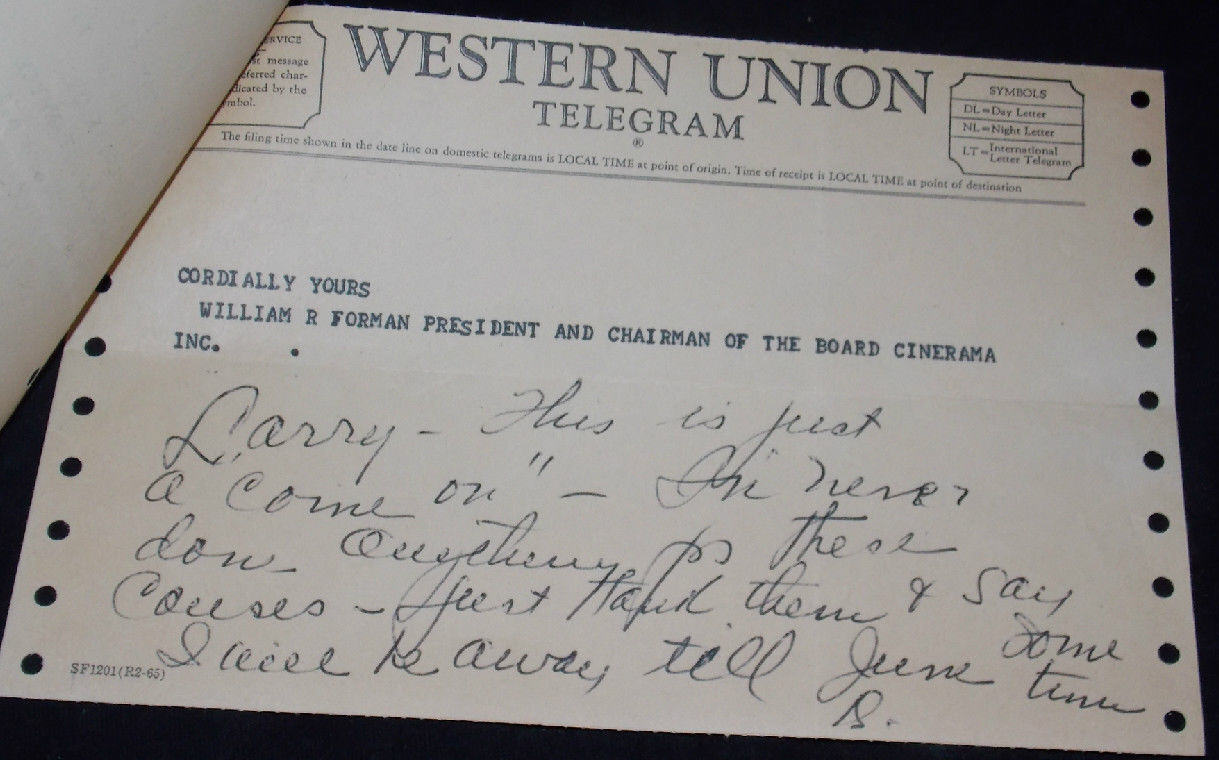 RVICE
st message
eferred char-
dicated by the
mbol.
WESTERN UNION
TELEGRAM
®
SYMBOLS
DL=Day Letter
NL=Night Letter
LT=International Letter Telegram
The filing time shown in the date line on domestic telegrams is LOCAL TIME at point of origin. Time of receipt is LOCAL TIME at point of destination
CORDIALLY YOURS
WILLIAM R FORMAN PRESIDENT AND CHAIRMAN OF THE BOARD CINERAMA
INC. .
Larry - This is just
a "come on" - I've never
done anything for these
Causes - Just thank them & say
I will be away till June some
time
B.
SF1201(R2-65)